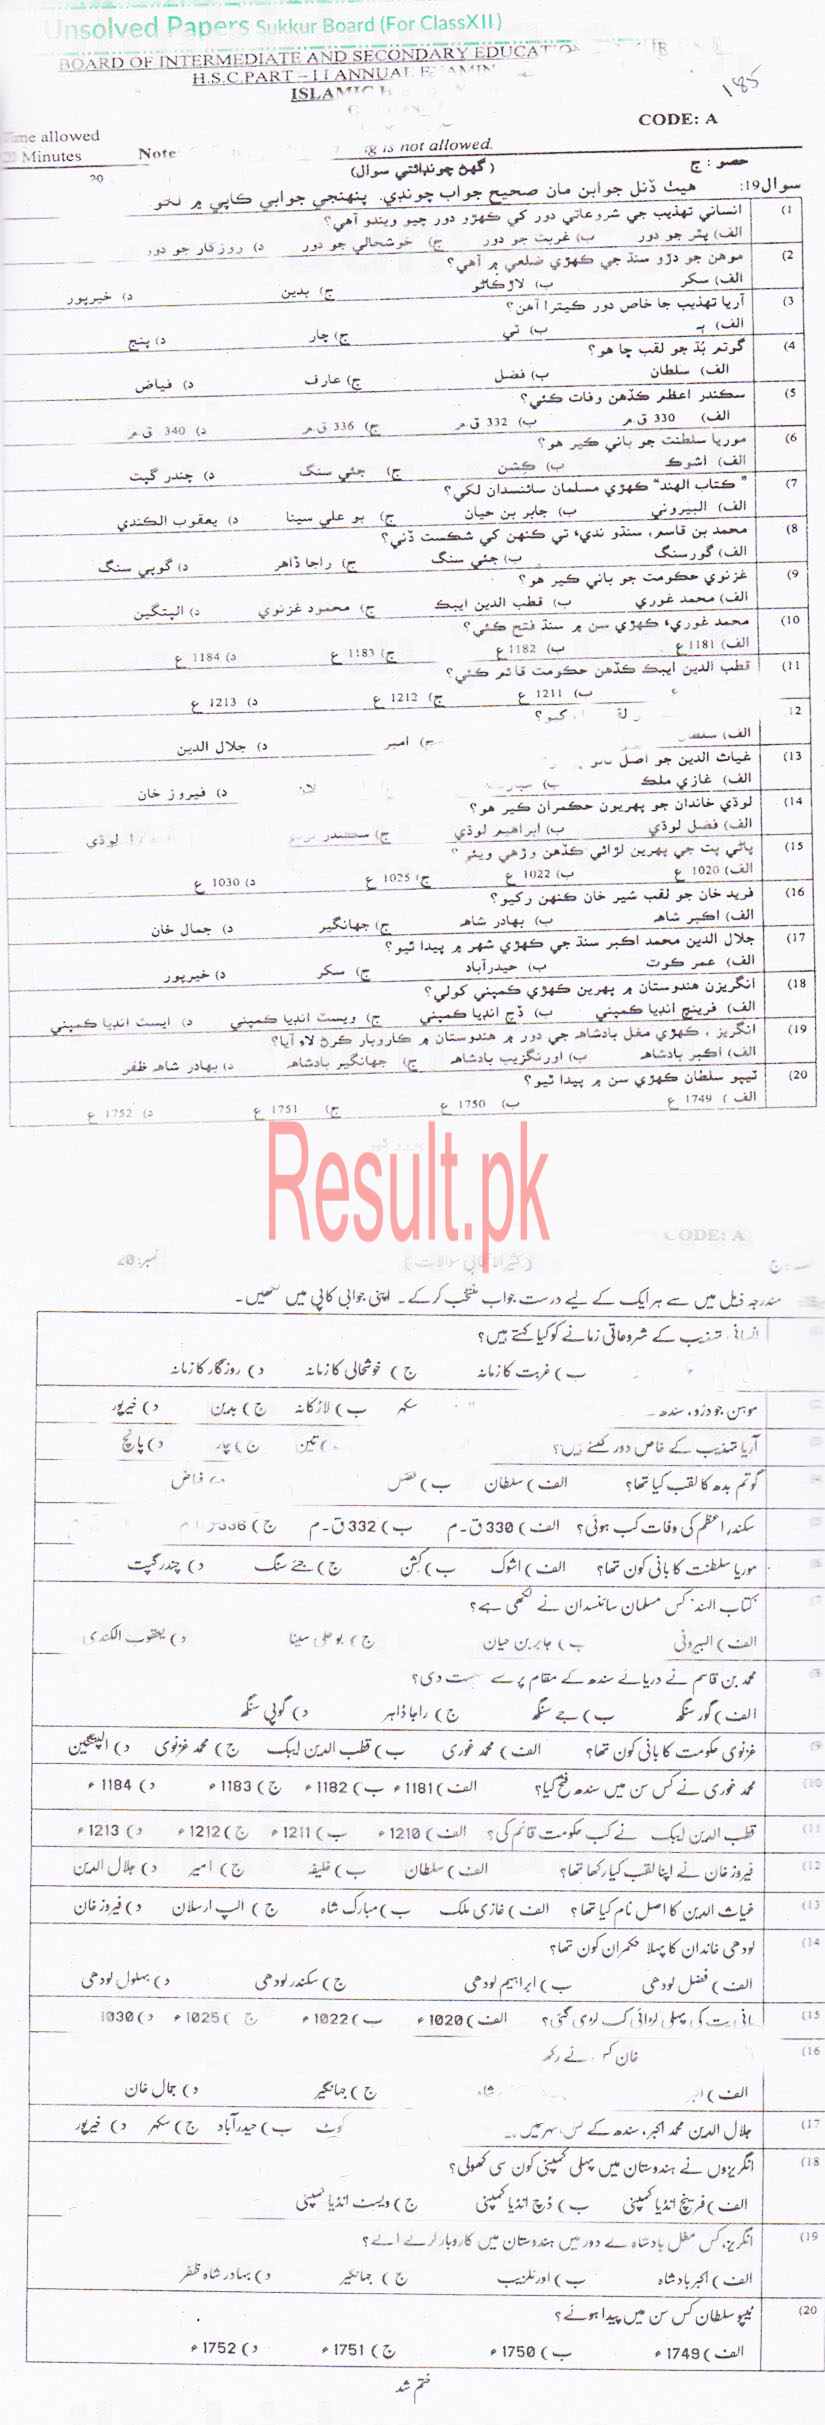 Unsolved Papers Sukkur Board (For ClassXII)
BOARD OF INTERMEDIATE AND SECONDARY EDUCATION
H.S.C.PART – II ANNUAL EXAMIN
ISLAMIC H
185
CODE: A
Time allowed
20 Minutes
Note
g is not allowed.
حصو : ج
(گهڻ چونڊائتي سوال)
20
سوال19: هيٺ ڏنل جوابن مان صحيح جواب چونڊي، پنهنجي جوابي ڪاپي ۾ لکو
1) انساني تهذيب جي شروعاتي دور کي ڪهڙو دور چيو ويندو آهي؟
الف) پٿر جو دور ب) غربت جو دور ج) خوشحالي جو دور د) روزگار جو دور
2) موهن جو دڙو سنڌ جي ڪهڙي ضلعي ۾ آهي؟
الف) سکر ب) لاڙڪاڻو ج) بدين د) خيرپور
3) آريا تهذيب جا خاص دور ڪيترا آهن؟
الف) ٻه ب) ٽي ج) چار د) پنج
4) گوتم ٻُڌ جو لقب ڇا هو؟
الف) سلطان ب) فضل ج) عارف د) فياض
5) سڪندر اعظم ڪڏهن وفات ڪئي؟
الف) 330 ق م ب) 332 ق م ج) 336 ق م د) 340 ق م
6) موريا سلطنت جو باني ڪير هو؟
الف) اشوڪ ب) ڪشن ج) جئي سنگ د) چندر گپت
7) "ڪتاب الهند" ڪهڙي مسلمان سائنسدان لکي؟
الف) البيروني ب) جابر بن حيان ج) بو علي سينا د) يعقوب الڪندي
8) محمد بن قاسم، سنڌو نديءَ تي ڪنهن کي شڪست ڏني؟
الف) گورسنگ ب) جئي سنگ ج) راجا ڏاهر د) گوپي سنگ
9) غزنوي حڪومت جو باني ڪير هو؟
الف) محمد غوري ب) قطب الدين ايبڪ ج) محمود غزنوي د) الپتگين
10) محمد غوريءَ ڪهڙي سن ۾ سنڌ فتح ڪئي؟
الف) 1181 ع ب) 1182 ع ج) 1183 ع د) 1184 ع
11) قطب الدين ايبڪ ڪڏهن حڪومت قائم ڪئي؟
ع ب) 1211 ع ج) 1212 ع د) 1213 ع
12 ڪيو؟
الف) ج) امير د) جلال الدين
13) غياث الدين جو اصل
الف) غازي ملڪ ب) د) فيروز خان
14) لوڌي خاندان جو پهريون حڪمران ڪير هو؟
الف) فضل لوڌي ب) ابراهيم لوڌي ج) سڪندر لوڌي
15) پاڻي پت جي پهرين لڙائي ڪڏهن وڙهي ويئي؟
الف) 1020 ع ب) 1022 ع ج) 1025 ع د) 1030 ع
16) فريد خان جو لقب شير خان ڪنهن رکيو؟
الف) اڪبر شاهه ب) بهادر شاهه ج) جهانگير د) جمال خان
17) جلال الدين محمد اڪبر سنڌ جي ڪهڙي شهر ۾ پيدا ٿيو؟
الف) عمر ڪوٽ ب) حيدرآباد ج) سکر د) خيرپور
18) انگريزن هندوستان ۾ پهرين ڪهڙي ڪمپني کولي؟
الف) فرينچ انڊيا ڪمپني ب) ڊچ انڊيا ڪمپني ج) ويسٽ انڊيا ڪمپني د) ايسٽ انڊيا ڪمپني
19) انگريز، ڪهڙي مغل بادشاهه جي دور ۾ هندوستان ۾ ڪاروبار ڪرڻ لاءِ آيا؟
الف) اڪبر بادشاهه ب) اورنگزيب بادشاهه ج) جهانگير بادشاهه د) بهادر شاهه ظفر
20) ٽيپو سلطان ڪهڙي سن ۾ پيدا ٿيو؟
الف) 1749 ع ب) 1750 ع ج) 1751 ع د) 1752 ع
Result.pk
CODE: A
ج (کثیر الانتخابی سوالات) نمبر: 20
مندرجہ ذیل میں سے ہر ایک کے لیے درست جواب منتخب کرکے۔ اپنی جوابی کاپی میں لکھیں۔
انسانی تہذیب کے شروعاتی زمانے کو کیا کہتے ہیں؟
ب) غربت کا زمانہ ج) خوشحالی کا زمانہ د) روزگار کا زمانہ
موہن جو دڑو، سندھ سکھر ب) لاڑکانہ ج) بدین د) خیرپور
آریا تہذیب کے خاص دور کتنے ہیں؟ تین ج) چار د) پانچ
گوتم بدھ کا لقب کیا تھا؟ الف) سلطان ب) فضل
سکندر اعظم کی وفات کب ہوئی؟ الف) 330 ق۔م ب) 332 ق۔م ج) 336
موریا سلطنت کا بانی کون تھا؟ الف) اشوک ب) کشن ج) جئے سنگ د) چندر گپت
کتاب الہند کس مسلمان سائنسدان نے لکھی ہے؟
الف) البیرونی ب) جابر بن حیان ج) بو علی سینا د) یعقوب الکندی
محمد بن قاسم نے دریائے سندھ کے مقام پر سے ست دی؟
الف) گور سنگھ ب) جے سنگھ ج) راجا ڈاہر د) گوپی سنگھ
غزنوی حکومت کا بانی کون تھا؟ الف) محمد غوری ب) قطب الدین ایبک ج) محمد غزنوی د) الپتگین
10) محمد غوری نے کس سن میں سندھ فتح کیا؟ الف) 1181ء ب) 1182ء ج) 1183ء د) 1184ء
11) قطب الدین ایبک نے کب حکومت قائم کی؟ الف) 1210ء ب) 1211ء ج) 1212ء د) 1213ء
12) فیروز خان نے اپنا لقب کیا رکھا تھا؟ الف) سلطان ب) خلیفہ ج) امیر د) جلال الدین
13) غیاث الدین کا اصل نام کیا تھا؟ الف) غازی ملک ب) مبارک شاہ ج) الپ ارسلان د) فیروز خان
14) لودھی خاندان کا پہلا حکمران کون تھا؟
الف) فضل لودھی ب) ابراہیم لودھی ج) سکندر لودھی د) بہلول لودھی
15) پانی پت کی پہلی لڑائی کب لڑی گئی؟ الف) 1020ء ب) 1022ء ج) 1025ء د) 1030
16) خان نے رکھ
الف) شاہ ج) جہانگیر د) جمال خان
17) جلال الدین محمد اکبر، سندھ کے کوٹ ب) حیدرآباد ج) سکھر د) خیرپور
18) انگریزوں نے ہندوستان میں پہلی کمپنی کون سی کھولی؟
الف) فرینچ انڈیا کمپنی ب) ڈچ انڈیا کمپنی ج) ویسٹ انڈیا کمپنی
19) انگریز، کس مغل بادشاہ کے دور میں ہندوستان میں کاروبار کرنے آئے؟
الف) اکبر بادشاہ ب) اورنگزیب ج) جہانگیر د) بہادر شاہ ظفر
20) ٹیپو سلطان کس سن میں پیدا ہوئے؟
الف) 1749ء ب) 1750ء ج) 1751ء د) 1752ء
ختم شد